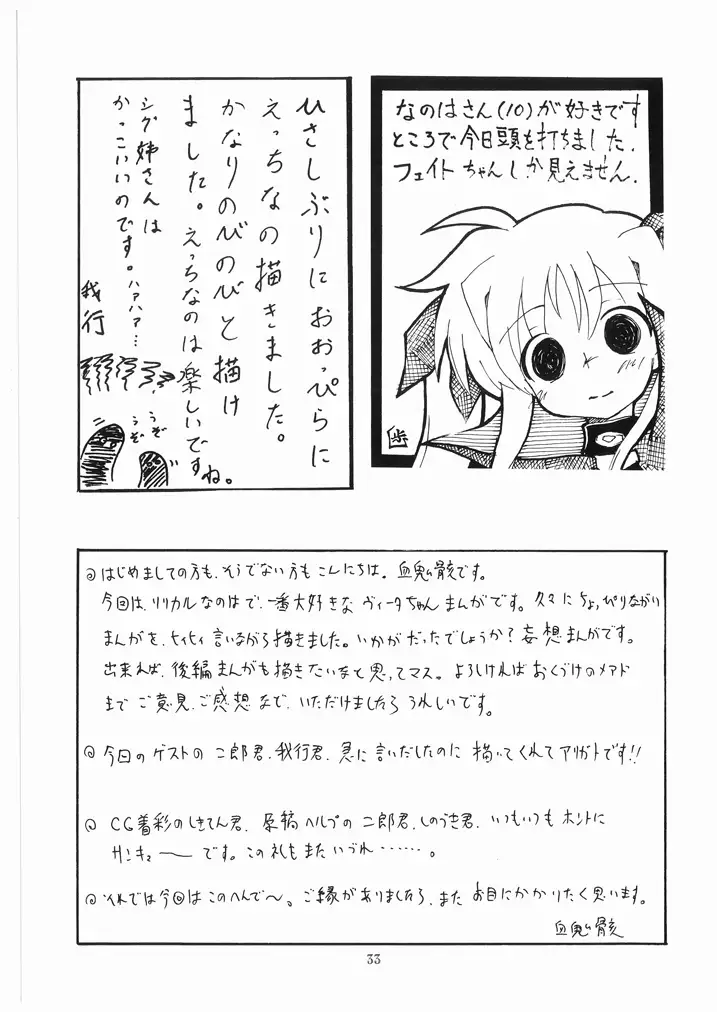 なのはさん(10)が好きです
ところで今日頭を打ちました.
フェイトちゃんしか見えません.
歩
ひさしぶりにおおっぴらに
えっちなの描きました。
かなりのびのびと描け
ました。えっちなのは楽しいですね。
シグ姉さんは
かっこいいのです。ハァハァ…
我行
うぞ
うぞ
◎はじめましての方も、そうでない方もこんにちは。血鬼骸です。
今回は、リリカルなのはで、一番大好きなヴィータちゃんまんがです。久々にちょぴりながい
まんがを、ヒィヒィ言いながら描きました。いかがだったでしょうか?妄想まんがです。
出来れば、後編まんがも描きたいなと思ってマス。よろしければおくづけのメアド
まで ご意見、ご感想など、いただけましたら うれしいです。
◎今回のゲストの 二郎君、我行君、急に言いだしたのに 描いてくれてアリガトです!!
◎CG着彩のしきてん君、原稿ヘルプの二郎君、しのづき君、いつもいつもホントに
サンキュー です。この礼もまたいづれ……。
◎それでは今回はこのへんで〜。ご縁がありましたら、また お目にかかりたく思います。
血鬼骸
33